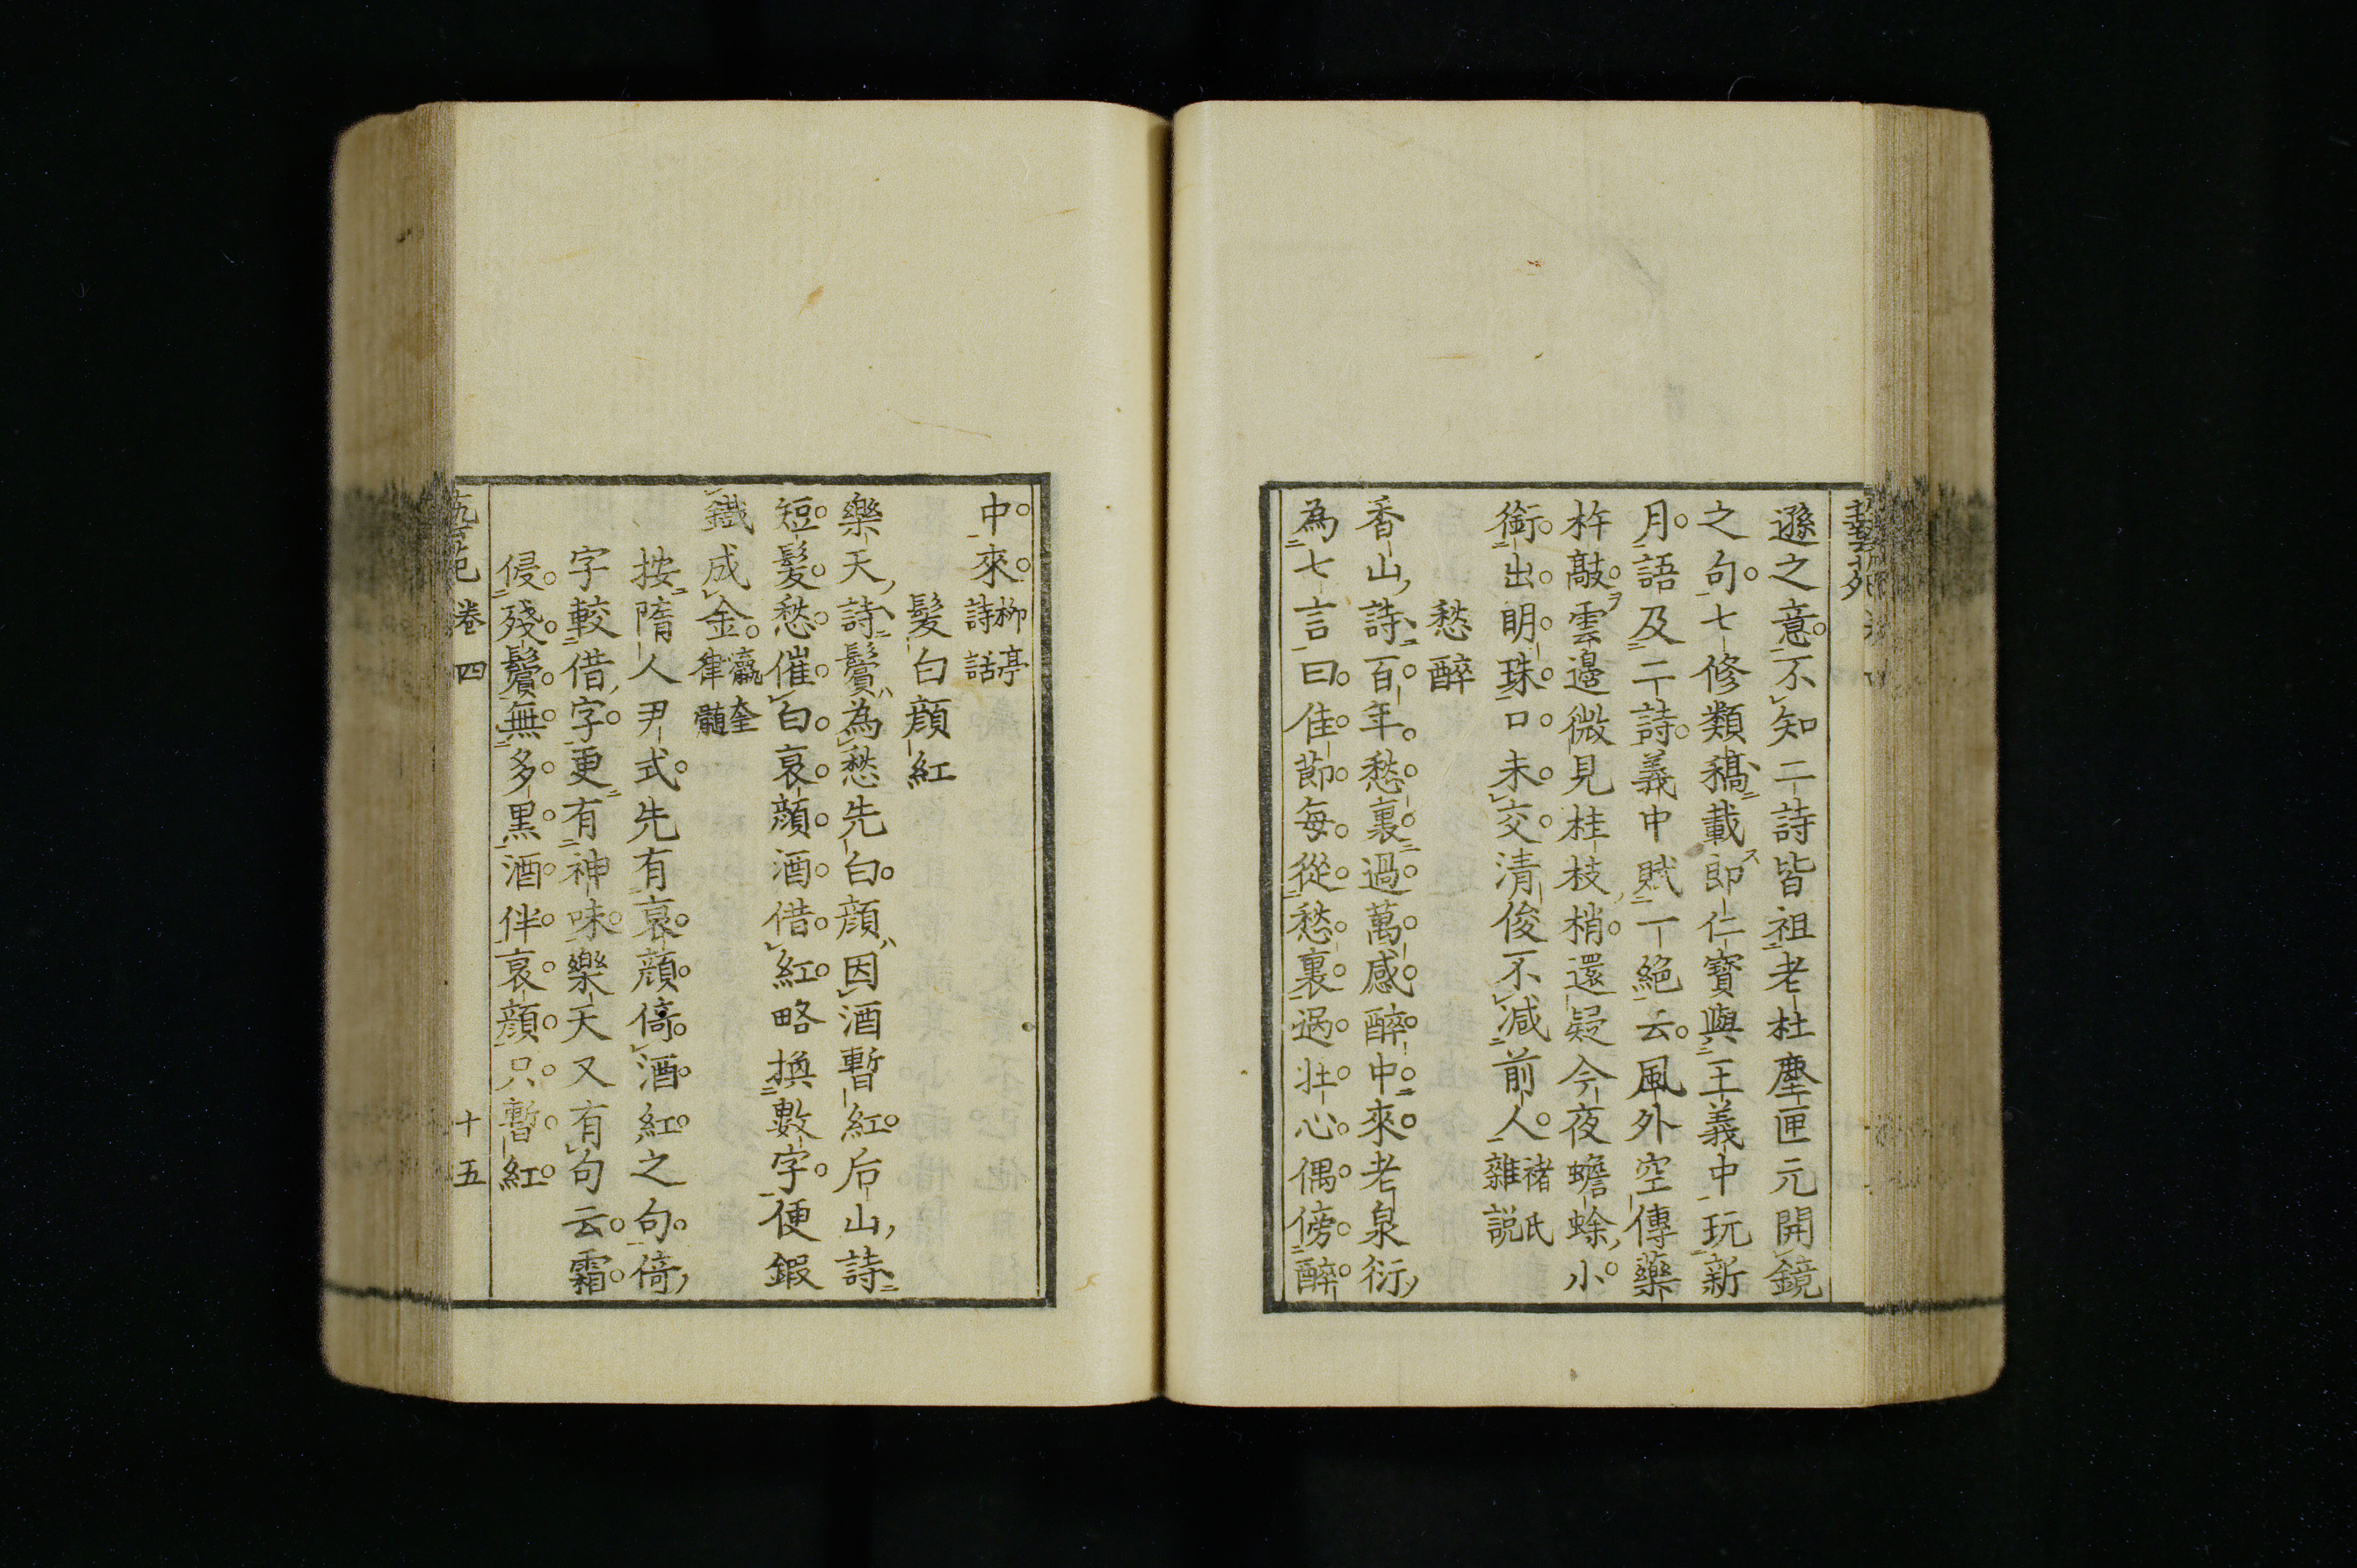 遜之意不知二詩皆祖老杜塵匣元開鏡
之句七修類稿載郎仁寶與王義中玩新
月語及二詩義中賦一絕云風外空傳藥
杵敲雲邊微見桂枝梢還疑今夜蟾蜍小
銜出明珠口未交清俊不減前人褚氏雜説
愁醉
香山詩百年愁裏過萬感醉中來老泉衍
為七言曰佳節每從愁裏過壯心偶傍醉
中來柳亭詩話
髮白顔紅
樂天詩鬢為愁先白顔因酒暫紅后山詩
短髮愁催白衰顔酒借紅略換數字便鍜
鐵成金瀛奎律髓
按隋人尹式先有衰顔倚酒紅之句倚
字較借字更有神味樂天又有句云霜
侵殘鬢無多黒酒伴衰顔只暫紅
卷四 十五